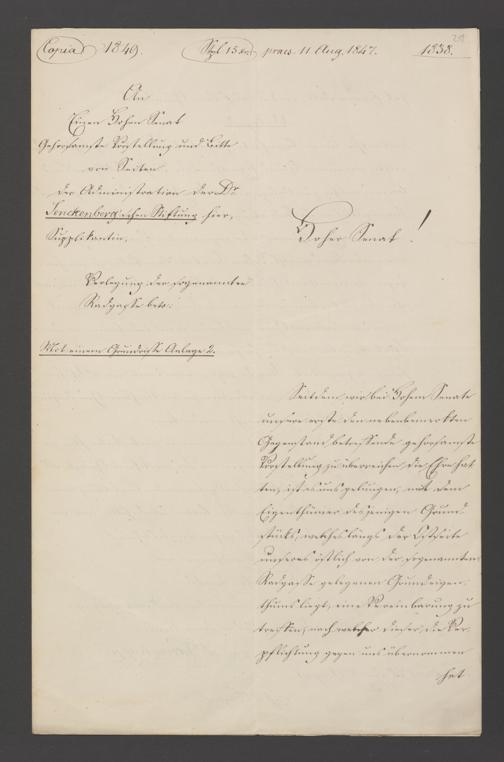 Copia 1849. Stpl 15 xr. praes. 11 Aug. 1847. 1838.
An
Einen Hohen Senat
Gehorsamste Vorstellung und Bitte
von Seiten
der Administration der Dr.
Senckenbergischen Stiftung hier,
Supplikantin,
Verlegung der sogenannten
Radgasse betr.
Mit einem Grundrisse Anlage 2.
Hoher Senat!
Seitdem wir bei Hohem Senate
unsere erste den nebenbemerkten
Gegenstand betreffende gehorsamste
Vorstellung zu überreichen die Ehre hat
ten, ist es uns gelungen, mit dem
Eigenthümer desjenigen Grund
stücks, welches längs der Ostseite
unseres östlich von der sogenannten
Radgasse gelegenen Grundeigen
thums liegt, eine Vereinbarung zu
treffen, nach welcher dieser die Ver
pflichtung gegen uns übernommen
hat